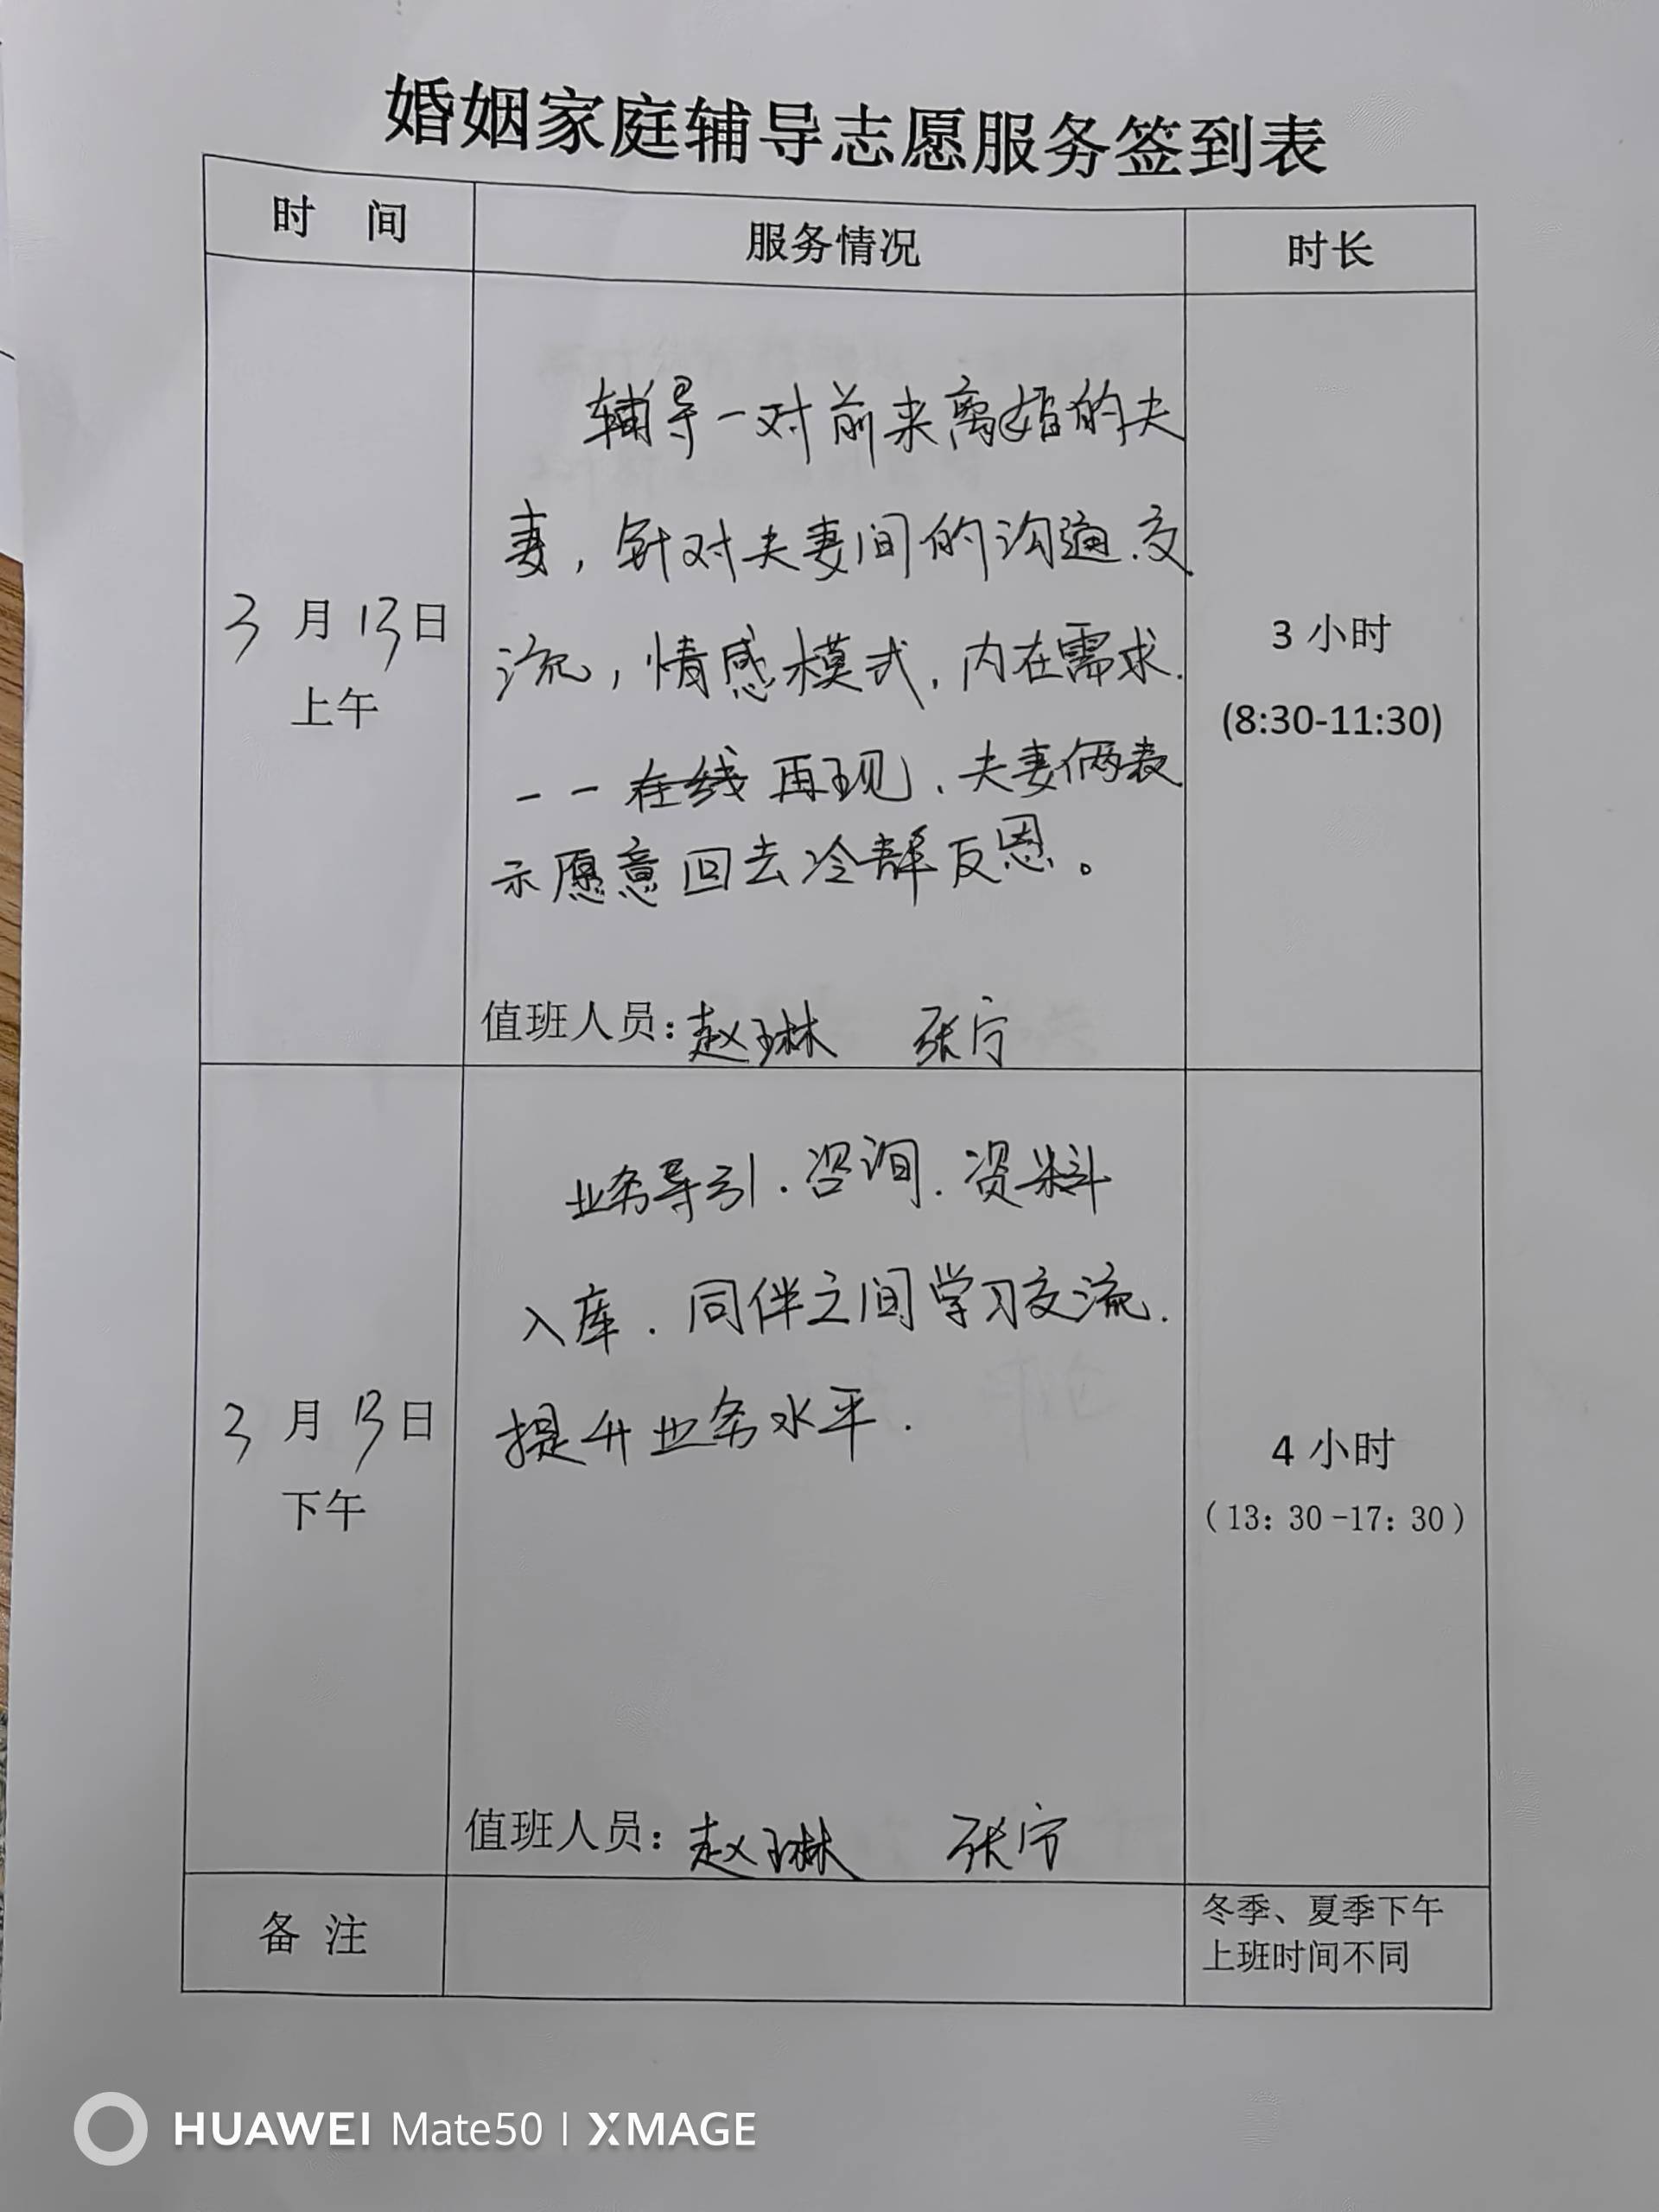 婚姻家庭辅导志愿服务签到表
时 间 服务情况 时长
辅导一对前来离婚的夫
妻，针对夫妻间的沟通.交
流，情感模式，内在需求.
一一在线再现，夫妻俩表
示愿意回去冷静反思。
3月13日
上午
3 小时
(8:30-11:30)
值班人员：赵琳 张宁
业务导引.咨询.资料
入库.同伴之间学习交流.
提升业务水平.
3月13日
下午
4 小时
（13：30-17：30）
值班人员：赵琳 张宁
备 注
冬季、夏季下午
上班时间不同
HUAWEI Mate50 | XMAGE